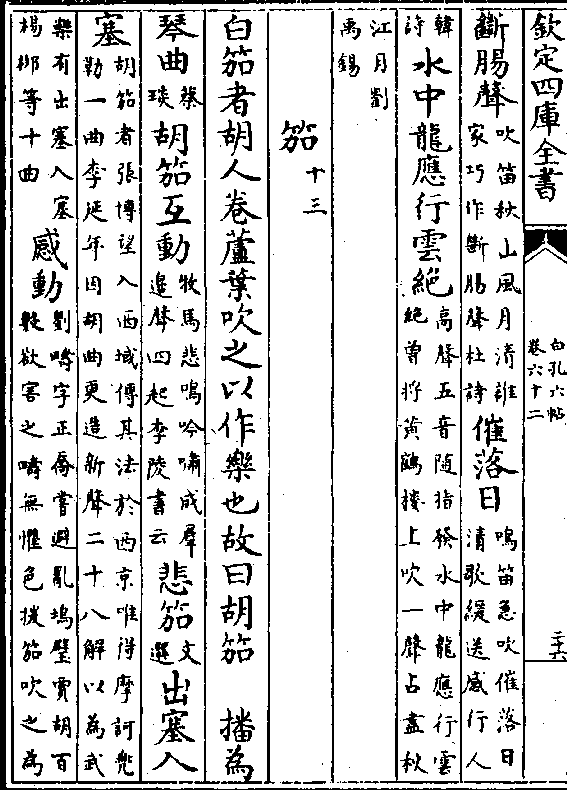 欽定四庫全書
白孔六帖
卷六十二
斷腸聲吹笛秋山風月清誰家巧作斷腸聲杜詩催落日鳴笛急吹催落日清歌緩送感行人
韓詩水中龍應行雲絶高聲五音隨指發水中龍應行雲絶曾將黄鶴樓上吹一聲占盡秋
江月劉禹錫
笳十三
白笳者胡人卷蘆葉吹之以作樂也故曰胡笳 播為
琴曲蔡琰胡笳互動牧馬悲鳴吟嘯成羣邉聲四起李陵書云悲笳文選出塞入
塞胡笳者張博望入西域傳其法於西京唯得摩訶兠勒一曲李延年因胡曲更造新聲二十八解以為武
樂有出塞入塞楊桞等十曲感動劉疇字正喬嘗避亂塢壁賈胡百數欲害之疇無懼色援笳吹之為